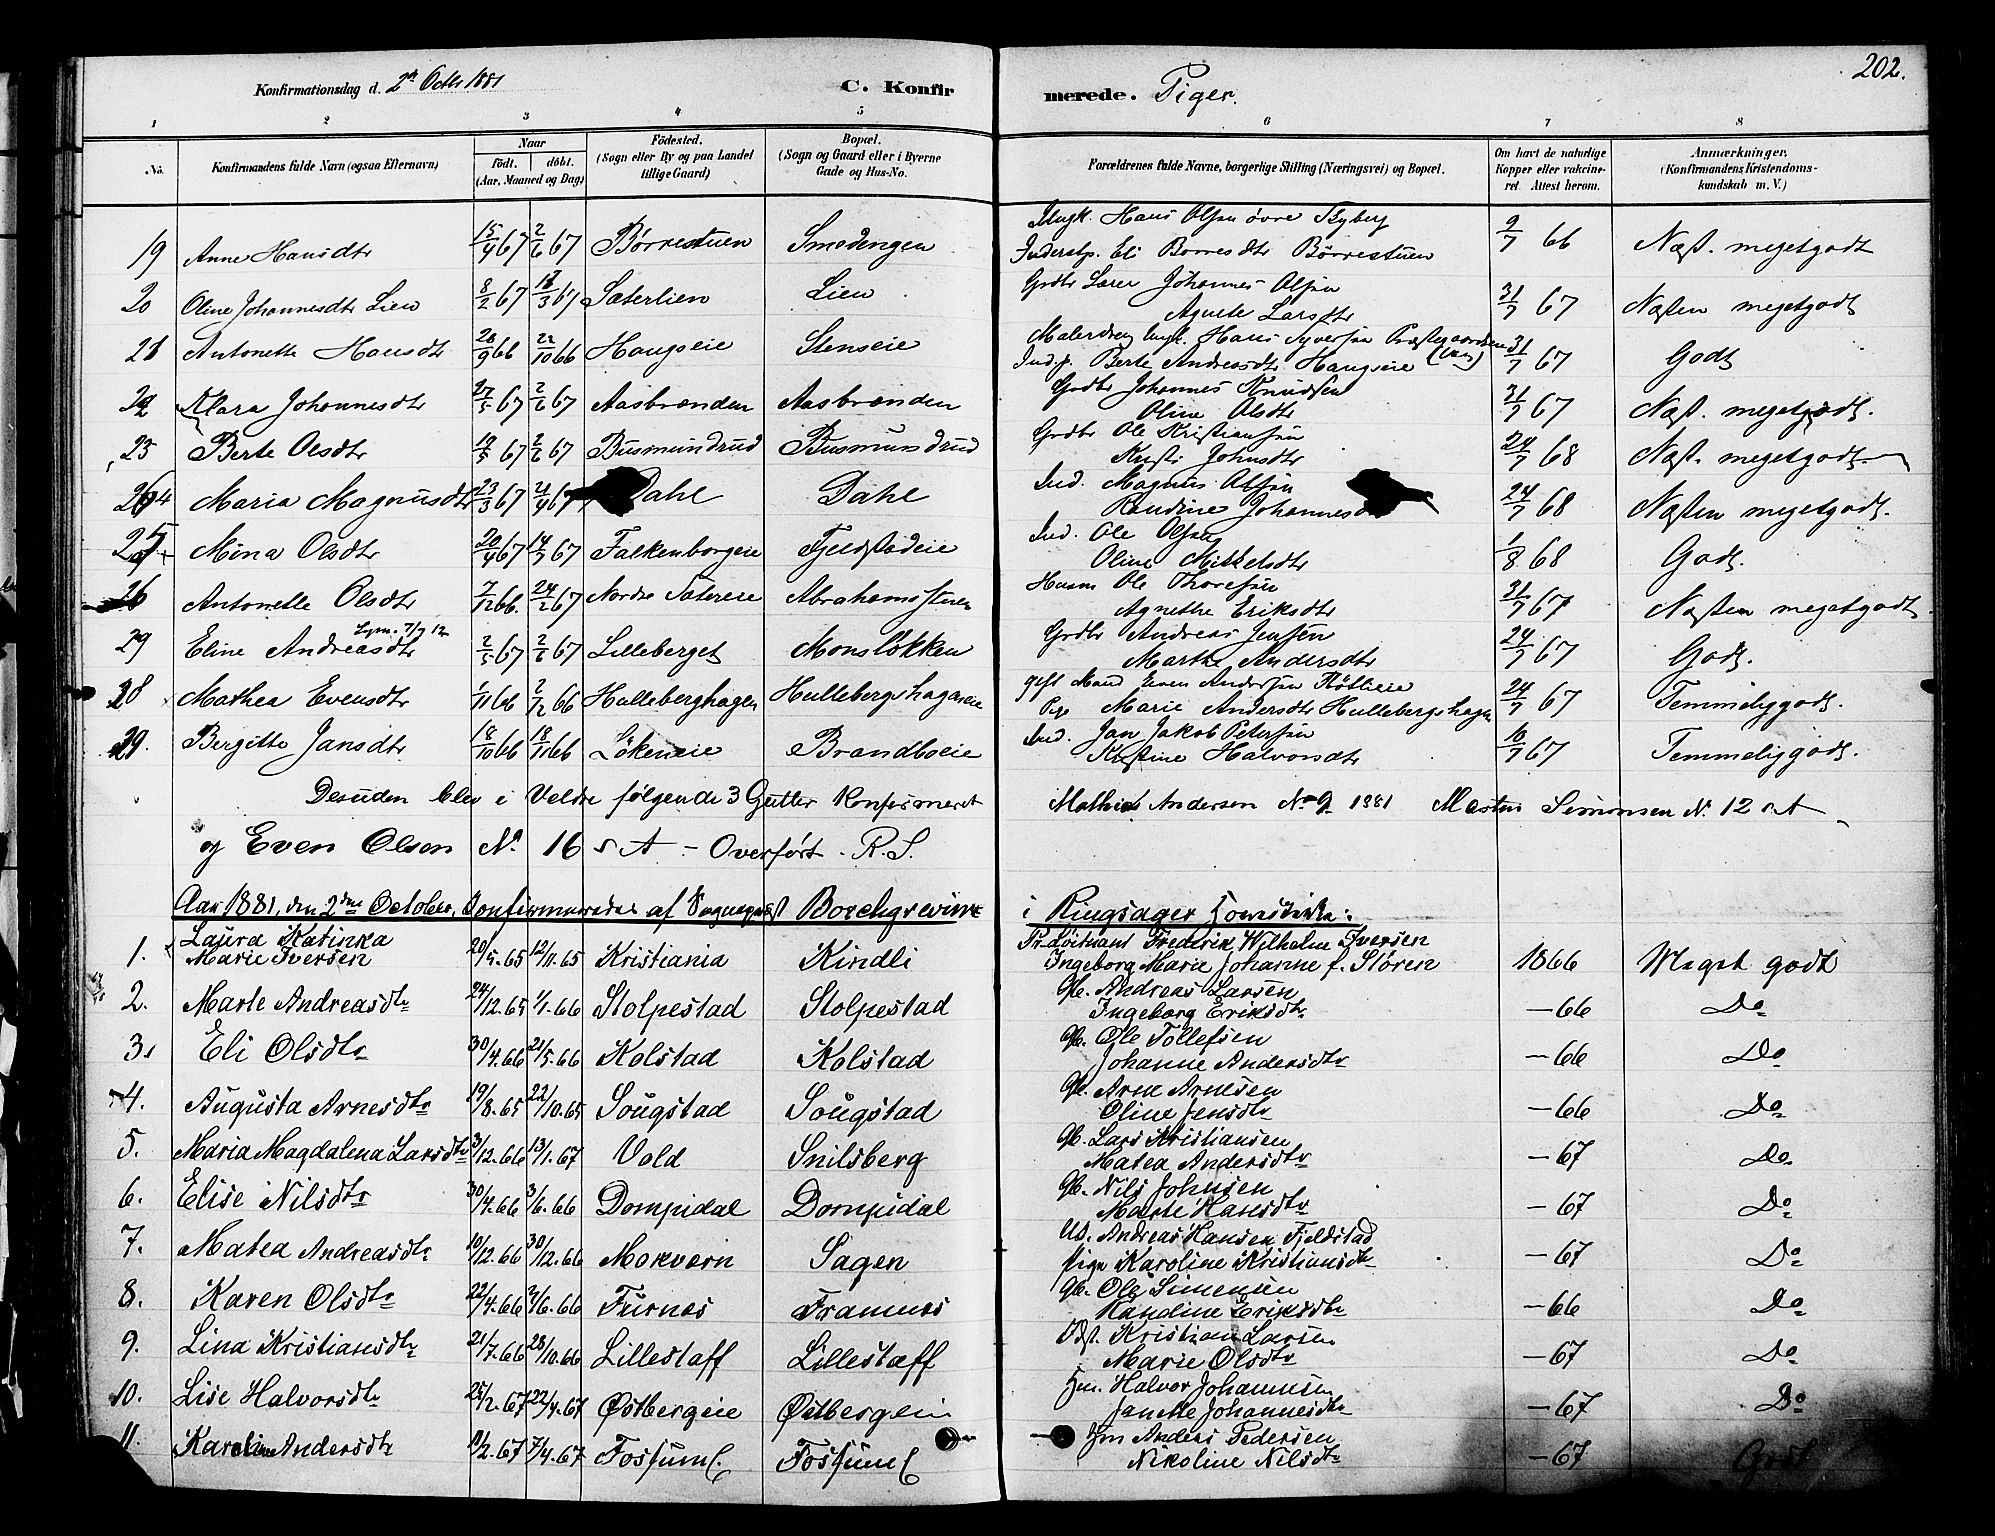 202.
Konfirmationsdag d. 2den Octbr 1881 C. Konfirmerede. Piger.
1 2 3 4 5 6 7 8
No. Konfirmandens fulde Navn (ogsaa Efternavn) Naar født. døbt. (Aar, Maaned og Dag) Fødested. (Sogn eller By og paa Landet tillige Gaard) Bopæl. (Sogn og Gaard eller i Byerne Gade og Hus-No. Forældrenes fulde Navne, borgerlige Stilling (Næringsvei) og Bopæl. Om havt de naturlige Kopper eller vakcineret. Attest herom. Anmærkninger, (Konfirmandens Kristendomskundskab m. V.)
19 Anne Hansdtr 15/4 67 2/6 67 Børrestuen Smedengen Ungk. Hans Olsen øvre Ryberg Inderstp. Eli Borresdtr Børrestuen 9/7 66 Næst. megetgodt
20 Oline Johannesdtr Lien 8/2 67 /3 67 Sæterlien Lien Grdbr Lærer Johannes Olsen Agnete Larsdtr 31/7 67 Næsten megetgodt
21 Antonette Hansdtr 20/9 66 22/10 66 Haugseie Stenseie Malerdreng Ungk. Hans Syversen Præstegaarden Ind.p. Berte Andreasdtr Haugseie 31/7 67 Godt
22 Klara Johannesdtr 27/5 67 2/6 67 Aasbrænden Aasbrænden Grdbr Johannes Knudsen Oline Olsdtr 31/7 67 Næst. megetgodt.
23 Berte Olsdtr 19/5 67 2/6 67 Busmundrud Busmundrud Grdbr Ole Kristiansen Kristi Johnsdtr 24/7 68 Næst. megetgodt.
24 Maria Magnusdtr 23/3 67 21/4 67 Dahl Dahl Ind. Magnus Olsen Randine Johannesd 24/7 68 Næsten megetgodt.
25 Mina Olsdtr 20/4 67 14/7 67 Falkenborgeie Fjeldstadeie Ind. Ole Olsen Oline Mikkelsdtr 1/8 68 Godt.
26 Antonette Olsdtr 7/12 66 24/2 67 Nordre Sætereie Abrahamsstuen Husm Ole Thoresen Agnethe Eriksdtr 31/7 67 Næsten megetgodt
29 Eline Andreasdtr 2/5 67 2/6 67 Lilleberget Monsløkken Grdbr Andreas Jensen Marthe Andersdtr 24/7 67 Godt.
28 Mathea Evensdtr 1/11 66 2/12 66 Hulleberghagen Hullebergshageneie gift Mand Even Andersen Pige Marie Andersdtr Hullebergshagen 24/7 67 Temmeliggodt.
29. Bergitte Jansdtr 18/10 66 18/11 66 Løkeneie Brandboeie Ind. Jan Jakob Petersen Kristine Halvorsdtr 10/7 67 Temmeliggodt.
Desuden blev i Veldre følgende 3 Gutter Konfirmeret Mathias Andersen No 9 1881 Martin Simonsen N. 12 s. A
og Even Olsen No 16 s A - Overført. R. S.
Aar 1881, den 2den October, Confirmeredes af Sognepræst Borchgrevink i Ringsager Hovedkirke:
1. Laura Katinka Marie Iversen 20/5.65 12/11.65 Kristiania Kindli Pr. Løitnant Frederik Wilhelm Iversen Ingeborg Marie Johanne f. Støren 1866 Meget godt
2. Marte Andreasdtr 24/12.65 1/1.66 Stolpestad Stolpestad Gb. Andreas Larsen Ingeborg Eriksdtr - 66 Do
3. Eli Olsdtr 30/4.66 21/5.66 Kolstad Kolstad Gb. Ole Tollefsen Johanne Andersdtr - 66 Do
4. Augusta Arnesdtr 19/8.65 22/10.65 Sougstad Sougstad Gb. Arne Arnesen Oline Jensdtr - 66 Do
5. Maria Magdalena Larsdtr 31/12.66 13/1.67 Vold Snilsberg Gb. Lars Kristiansen Matea Andersdtr - 67 Do
6. Elise Nilsdtr 30/4.66 3/6.66 Dompidal Dompidal Gb. Nils Johnsen Marte Hansdtr - 67 Do
7. Matea Andreasdtr 10/12.66 30/12.66 Mokvern Sagen Andreas Hansen Fjeldstad Pige Karoline Kristiansdtr - 67 Do
8. Karen Olsdtr 22/4.66 3/6.66 Furnes Framnes Gb. Ole Simensen Randine Eriksdtr - 66 Do
9. Lina Kristiansdtr 21/7.66 28/10.66 Lillestaff Lillestæff Kristian Larsen Marie Olsdtr - 67 Do
10. Lise Halvorsdtr 25/2.67 22/4.67 Østbergeie Østbergeie Hm. Halvor Johannesen Janette Johannesdtr - 67 Do
11. Karoline Andersdtr 11/2.67 7/4.67 Fossum Fossum Hm Anders Pedersen Nikoline Nilsdtr - 67 Godt